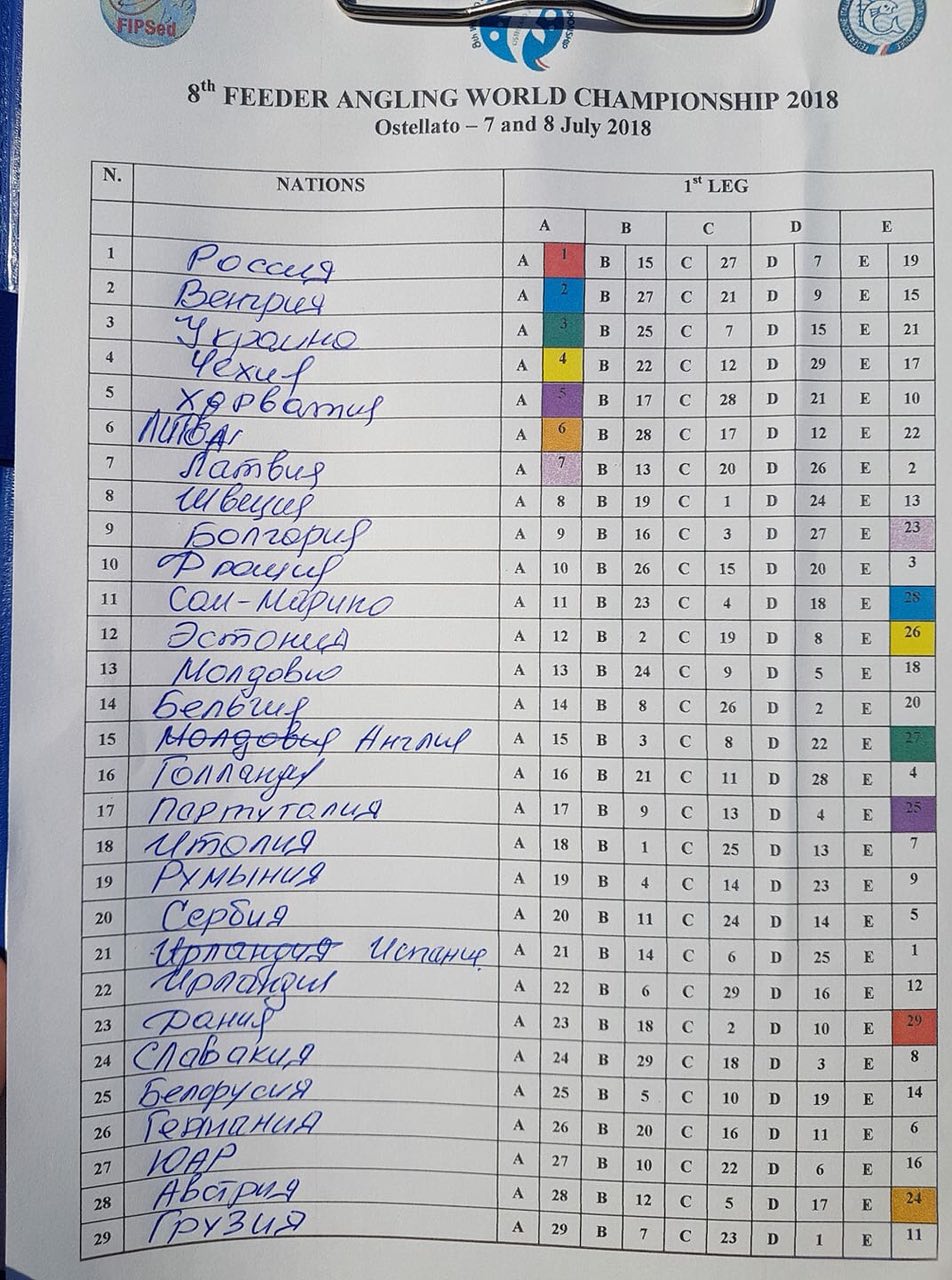 FIPSed
8th FEEDER ANGLING WORLD CHAMPIONSHIP 2018
Ostellato – 7 and 8 July 2018
N. NATIONS 1st LEG
A B C D E
1 Россия A 1 B 15 C 27 D 7 E 19
2 Венгрия A 2 B 27 C 21 D 9 E 15
3 Украина A 3 B 25 C 7 D 15 E 21
4 Чехия A 4 B 22 C 12 D 29 E 17
5 Хорватия A 5 B 17 C 28 D 21 E 10
6 ЛИТВА A 6 B 28 C 17 D 12 E 22
7 Латвия A 7 B 13 C 20 D 26 E 2
8 Швеция A 8 B 19 C 1 D 24 E 13
9 Болгория A 9 B 16 C 3 D 27 E 23
10 Франция A 10 B 26 C 15 D 20 E 3
11 Сан-Марино A 11 B 23 C 4 D 18 E 28
12 Эстония A 12 B 2 C 19 D 8 E 26
13 Молдова A 13 B 24 C 9 D 5 E 18
14 Бельгия A 14 B 8 C 26 D 2 E 20
15 Молдовия Англия A 15 B 3 C 8 D 22 E 27
16 Голландия A 16 B 21 C 11 D 28 E 4
17 Партугалия A 17 B 9 C 13 D 4 E 25
18 Италия A 18 B 1 C 25 D 13 E 7
19 Румыния A 19 B 4 C 14 D 23 E 9
20 Сербия A 20 B 11 C 24 D 14 E 5
21 Ирландия Испание A 21 B 14 C 6 D 25 E 1
22 Ирландия A 22 B 6 C 29 D 16 E 12
23 Дания A 23 B 18 C 2 D 10 E 29
24 Славакия A 24 B 29 C 18 D 3 E 8
25 Белорусия A 25 B 5 C 10 D 19 E 14
26 Германия A 26 B 20 C 16 D 11 E 6
27 ЮАР A 27 B 10 C 22 D 6 E 16
28 Австрия A 28 B 12 C 5 D 17 E 24
29 Грузия A 29 B 7 C 23 D 1 E 11